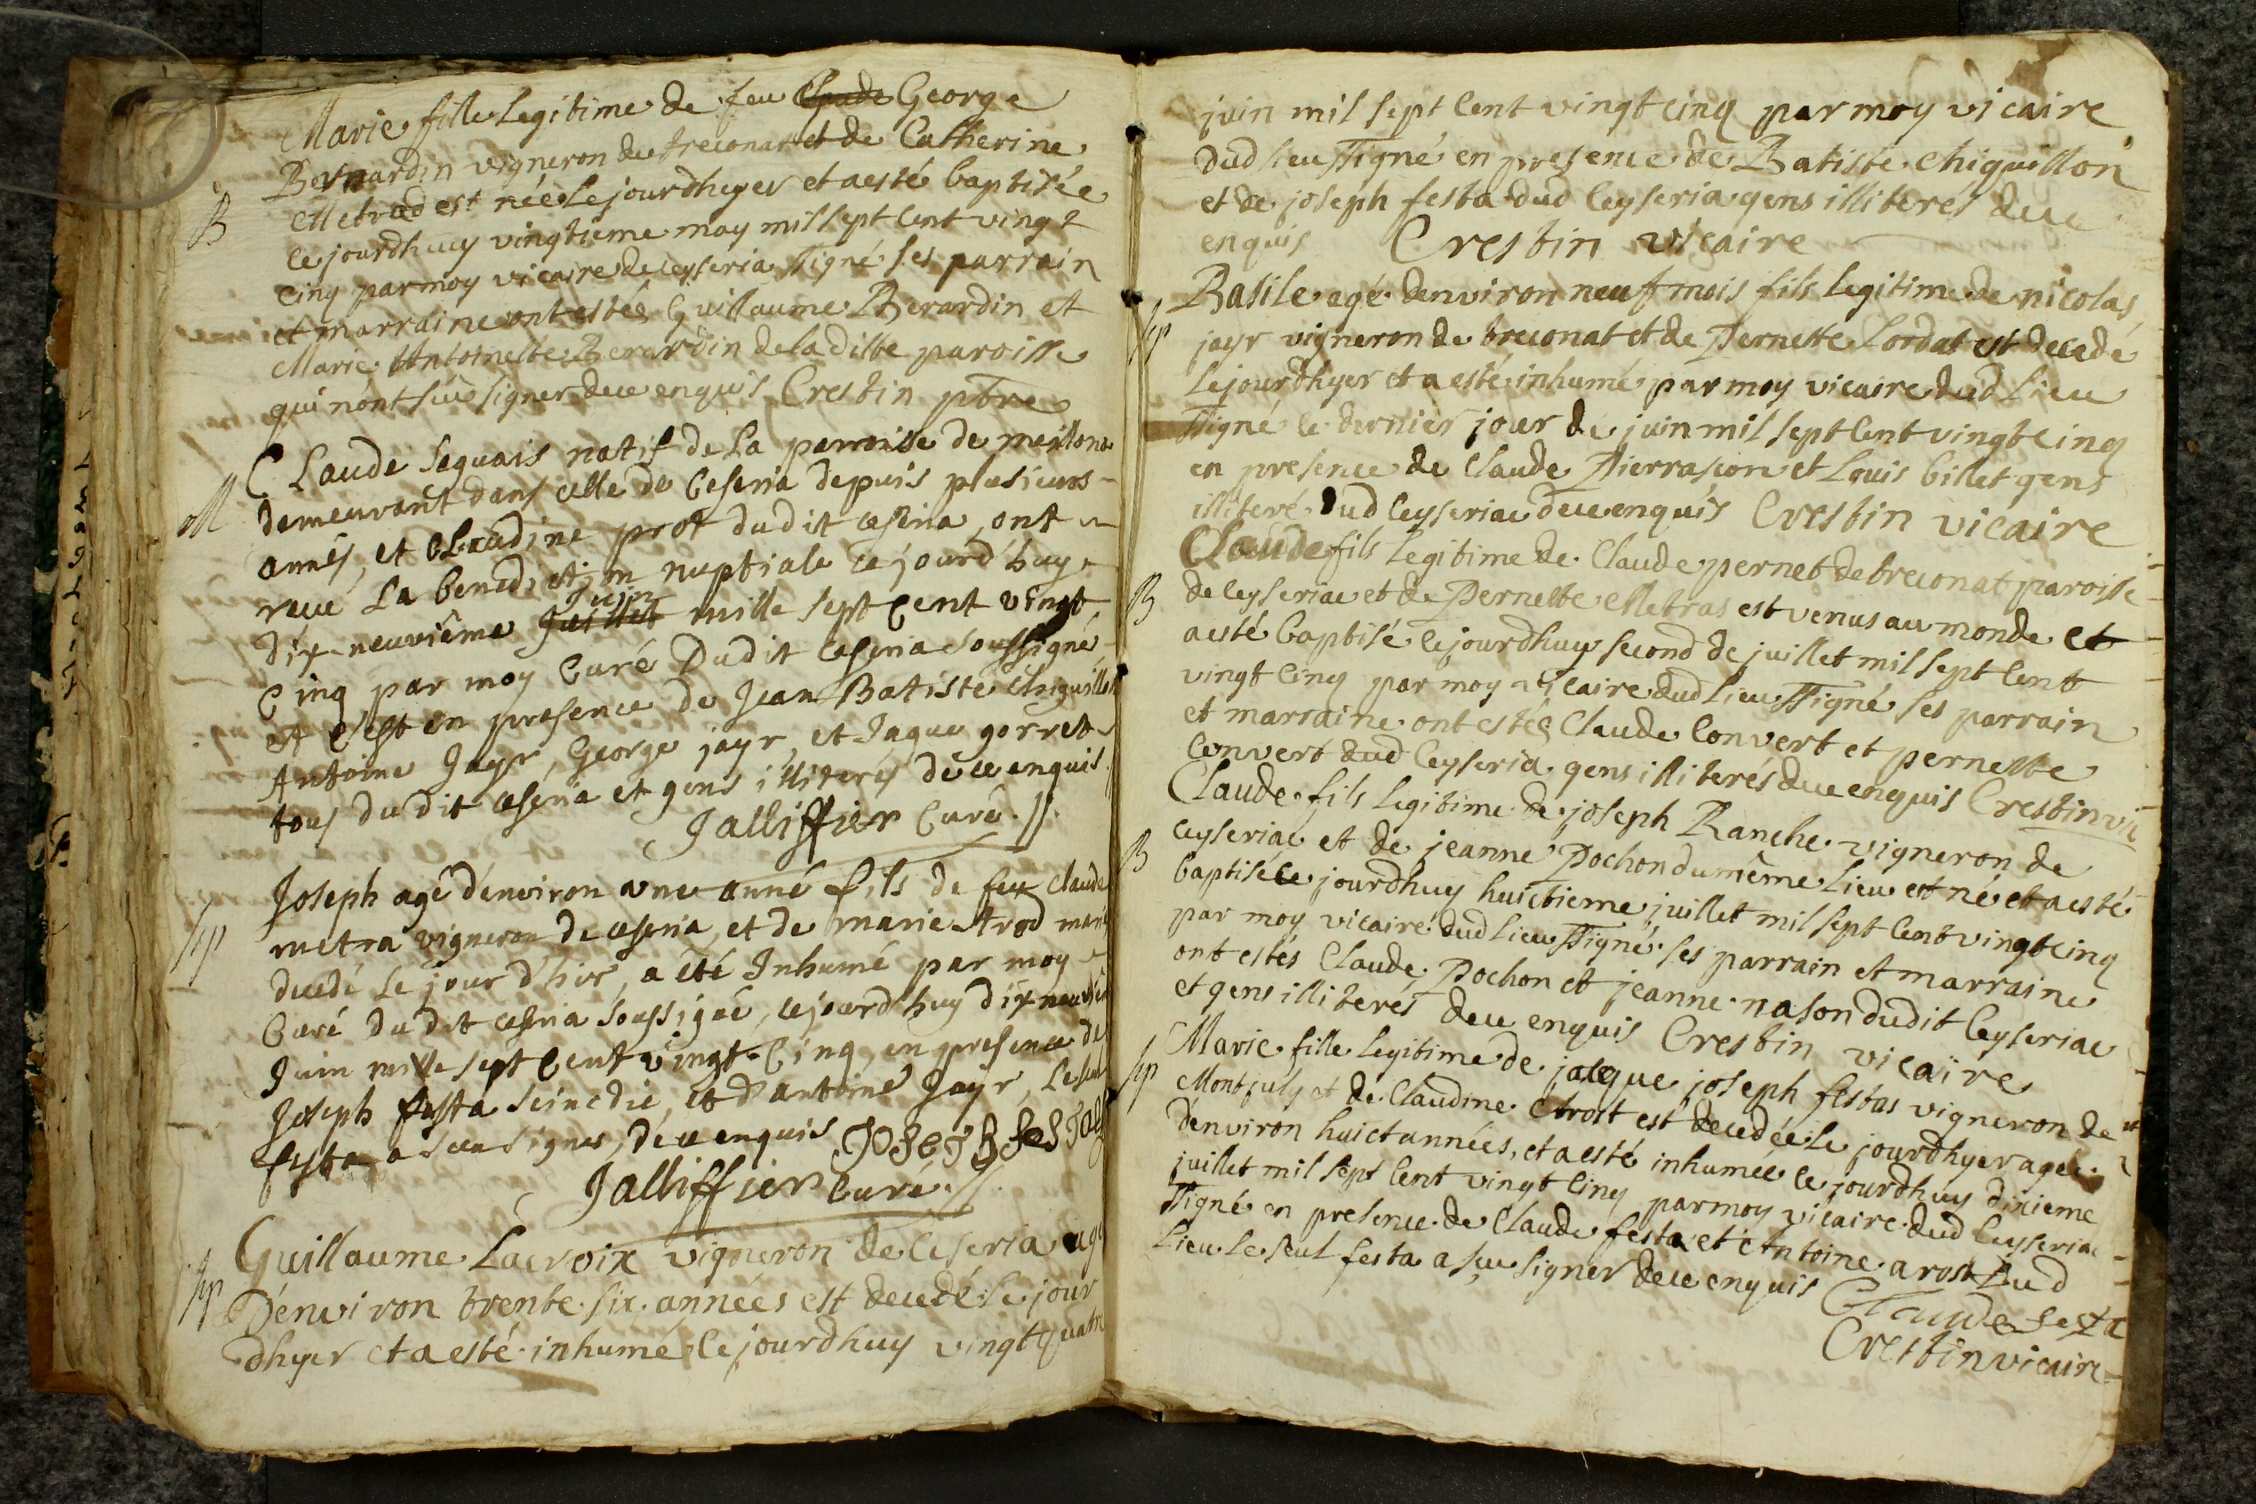 Marie fille legitime de feu Claude George
Bernardin vigneron de treconat et de Catherine
B
Metrad est née le jourdhyer et a esté baptisée
ce jourdhuy vingtieme may mil sept cent vingt
cinq par moy vicaire de ceyseria ssigné ses parrain
et marraine ont estés Guillaume Berardin et
Marie Antoinette Berardin de la ditte paroisse
qui nont sçu signer de ce enquis Crestin pbre
Claude seguais natif de la parroisse de meillona
M
demeurant dans celle de Ceseria depuis plusieurs
années, et Claudine prost dudit ceseria, ont
receu La benediction nuptiale ce jourd'huy
dix-neuvième Juillet juin mille sept cent vingt
Cinq par moy Curé Dudit Ceseria soussigné
et c'est en presence de Jean Batiste Chiquillon
Antoine Jayr, George jayr, et Jaque gorret
tous dudit ceseria et gens illiterés de ce enquis.
Jalliffier Curé.
Joseph agé d'environ une anné fils de feu Claude
Sep
metra vigneron de ceseria, et de marie trod
decedé le jour d'hier, a été Inhumé par moy
Curé dudit ceseria soussigné, cejourd'huy dix neuvie
Juin mille sept Cent vingt-Cinq, en presence de
Joseph festa scindic, et d'antoine Jayr, le seul
festa a sceu signer, de ce enquis
Jalliffier Curé.
Guillaume Lacroix vigneron de Ceseria agé
Sep
D'environ trente six années est decedé le jour
dhyer et a esté inhumé ce jourdhuy vingt quatre
juin mil sept cent vingt cinq par moy vicaire
dud lieu ssigné en presence de Batiste chiquillon
et de joseph festa dud Ceyseria gens illiterés de ce
enquis Crestin vicaire
Basile agé denviron neuf mois fils legitime de nicolas
Sep
jayr vigneron de treconat et de Pernette Cordat est decedé
le jourdhyer et a esté inhumé par moy vicaire dud lieu
ssigné le dernier jour de juin mil sept cent vingt cinq
en presence de Claude Pierrasçon et Louis billet gens
illiteré dud Ceyseriac de ce enquis Crestin vicaire
Claude fils legitime de Claude pernet de treconat paroisse
B
de ceyseriac et de Pernette Metras est venus au monde et
a esté baptisé ce jourdhuy second de juillet mil sept cent
vingt cinq par moy vicaire dud lieu ssigné ses parrain
et marraine ont estés Claude Convert et pernette
Convert dud Ceyseria gens illiterés de ce enquis Crestin vic
Claude fils legitime de joseph Ranche vigneron de
B
Ceyseriac et de jeanne Pochon du même lieu est né et a esté
baptisé ce jourdhuy huictieme juillet mil sept cent vingt cinq
par moy vicaire dud lieu ssigné ses parrain et marraine
ont estés Claude Pochon et jeanne nason dudit Ceyseriac
et gens illiterés de ce enquis Crestin vicaire
Marie fille legitime de jacque joseph festas vigneron de
Sep
Montjuly et de Claudine trost est decedée le jourdhyer agée
d'environ huict années, et a esté inhumée ce jourdhuy dixieme
juillet mil sept cent vingt cinq par moy vicaire dud Ceyseriac
ssigné en presence de Claude festa et Antoine arost dud
lieu le seul festa a sçu signer de ce enquis
Claude festa
Crestin vicaire